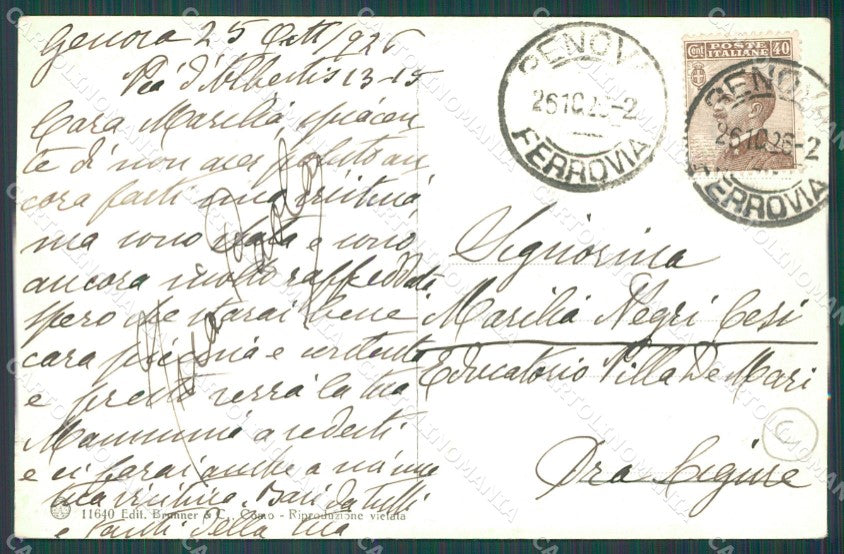 Genova 25 Ott/926
Via d'Albertis 13-15
Cara Marilia, spiacen
te di non aver potuto an
cora farti una visitina,
ma sono stata e sono
ancora molto raffeddata
spero che starai bene
cara piccina e contenta
e presto verrà la tua
Mammina a vederti
e ci farai anche a me una
visitina. Baci da tutti
e tanti della tua
Paola
11640 Edit. Brunner & C., Como - Riproduzione vietata
GENOVA
26 10.26-2
FERROVIA
POSTE
ITALIANE
Cent 40
GENOVA
26 10 26-2
FERROVIA
Signorina
Marilia Negri Cesi
Educatorio Villa De Mari
Pra Ligure
C
CARTOLINOMANIA